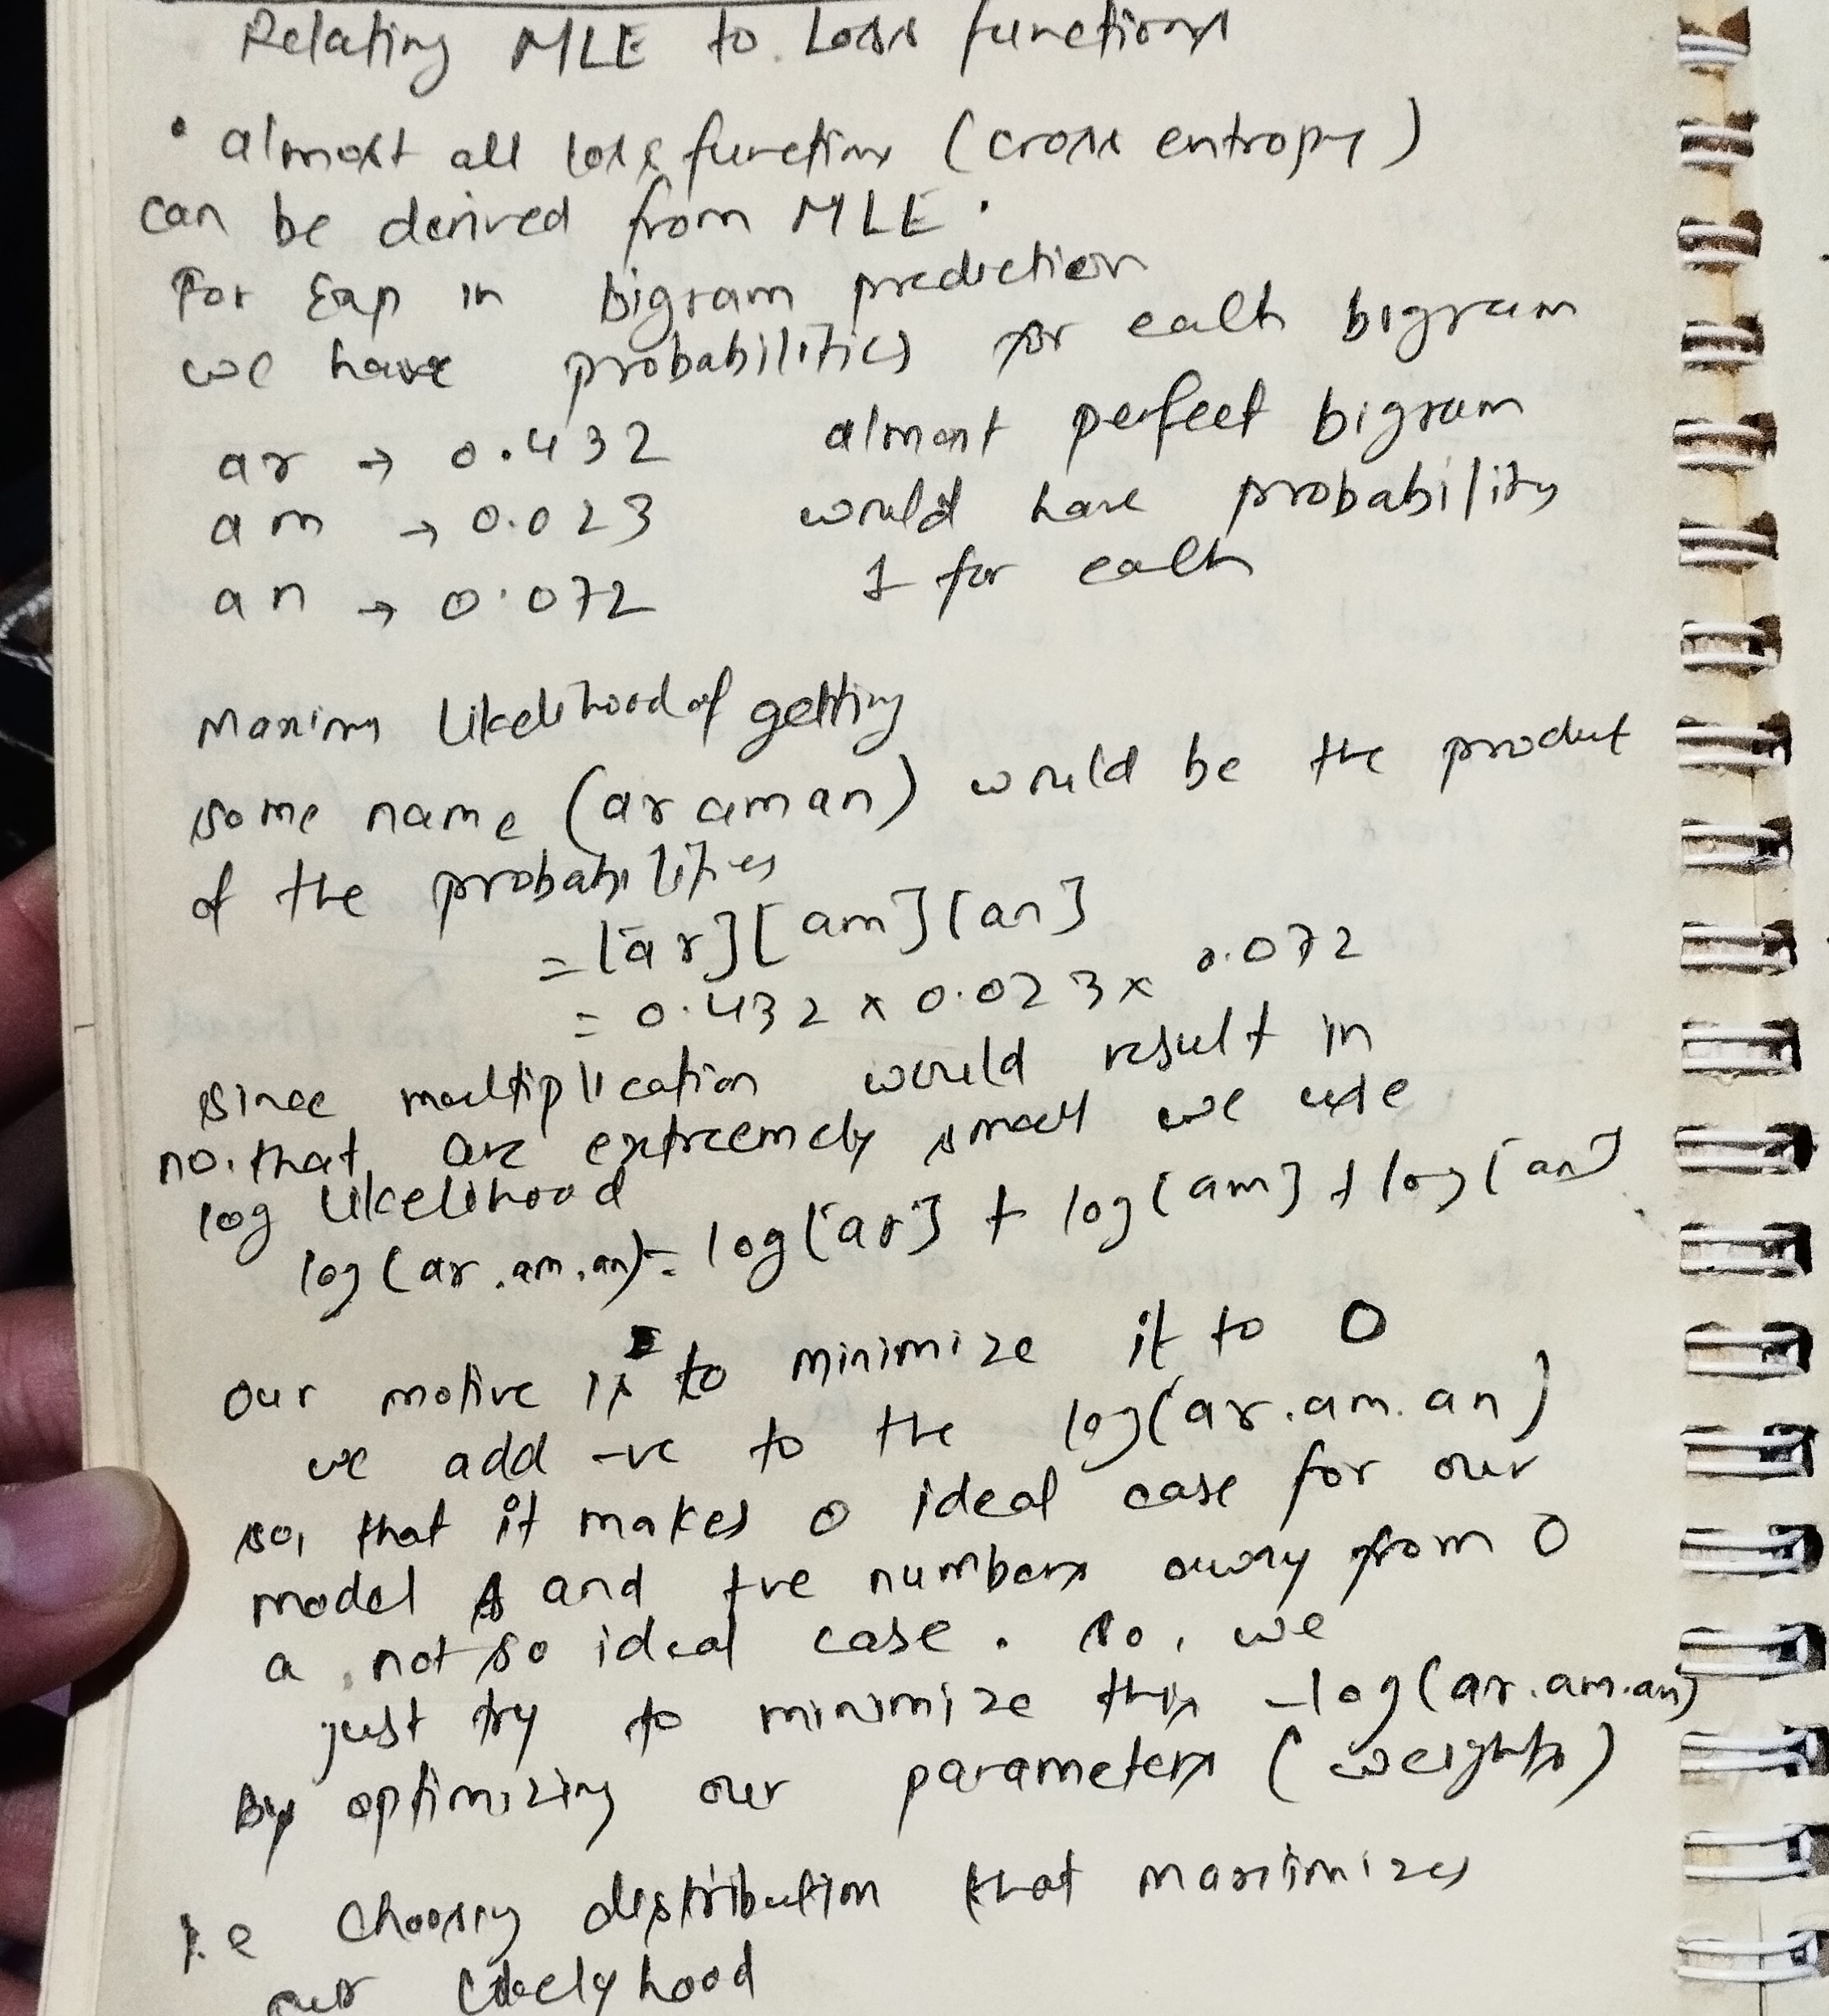 Relating MLE to Loss functions
• almost all loss functions (cross entropy)
can be derived from MLE.
For Exp in bigram prediction
we have probabilities for each bigram
ar → 0.432 almost perfect bigram
am → 0.023 would have probability
an → 0.072 1 for each
Maximum Likelihood of getting
some name (ar am an) would be the product
of the probabilities
= [ar][am][an]
= 0.432 x 0.023 x 0.072
since multiplication would result in
no. that are extreemely small we use
log likelihood
log(ar.am.an) = log[ar] + log[am] + log[an]
our motive is to minimize it to 0
we add -ve to the log(ar.am.an)
so, that it makes 0 ideal case for our
model and +ve numbers away from 0
a not so ideal case. so, we
just try to minimize this -log(ar.am.an)
By optimizing our parameters (weights)
i.e choosing distribution that maximizes
our likelyhood